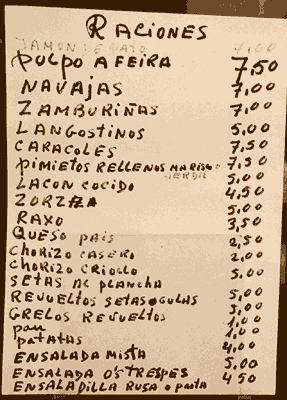 RACIONES
JAMON DE PATO
PULPO A FEIRA 7,50
NAVAJAS 7,00
ZAMBURIÑAS 7,00
LANGOSTINOS 5,00
CARACOLES 7,50
PIMIETOS RELLENOS MARISCO 7,50
LACON COCIDO 5,00
ZORZA 4,50
RAXO 5,00
QUESO PAIS 3,50
CHORIZO CASERO 2,50
CHORIZO CRIOLLO 2,00
SETAS AL PLANCHA 5,00
REVUELTOS SETAS O GULAS 5,00
GRELOS REVUELTOS 5,00
pan 1,00
PATATAS
ENSALADA MISTA 4,00
ENSALADA OS TRESPES 5,00
ENSALADILLA RUSA o pasta 4 50